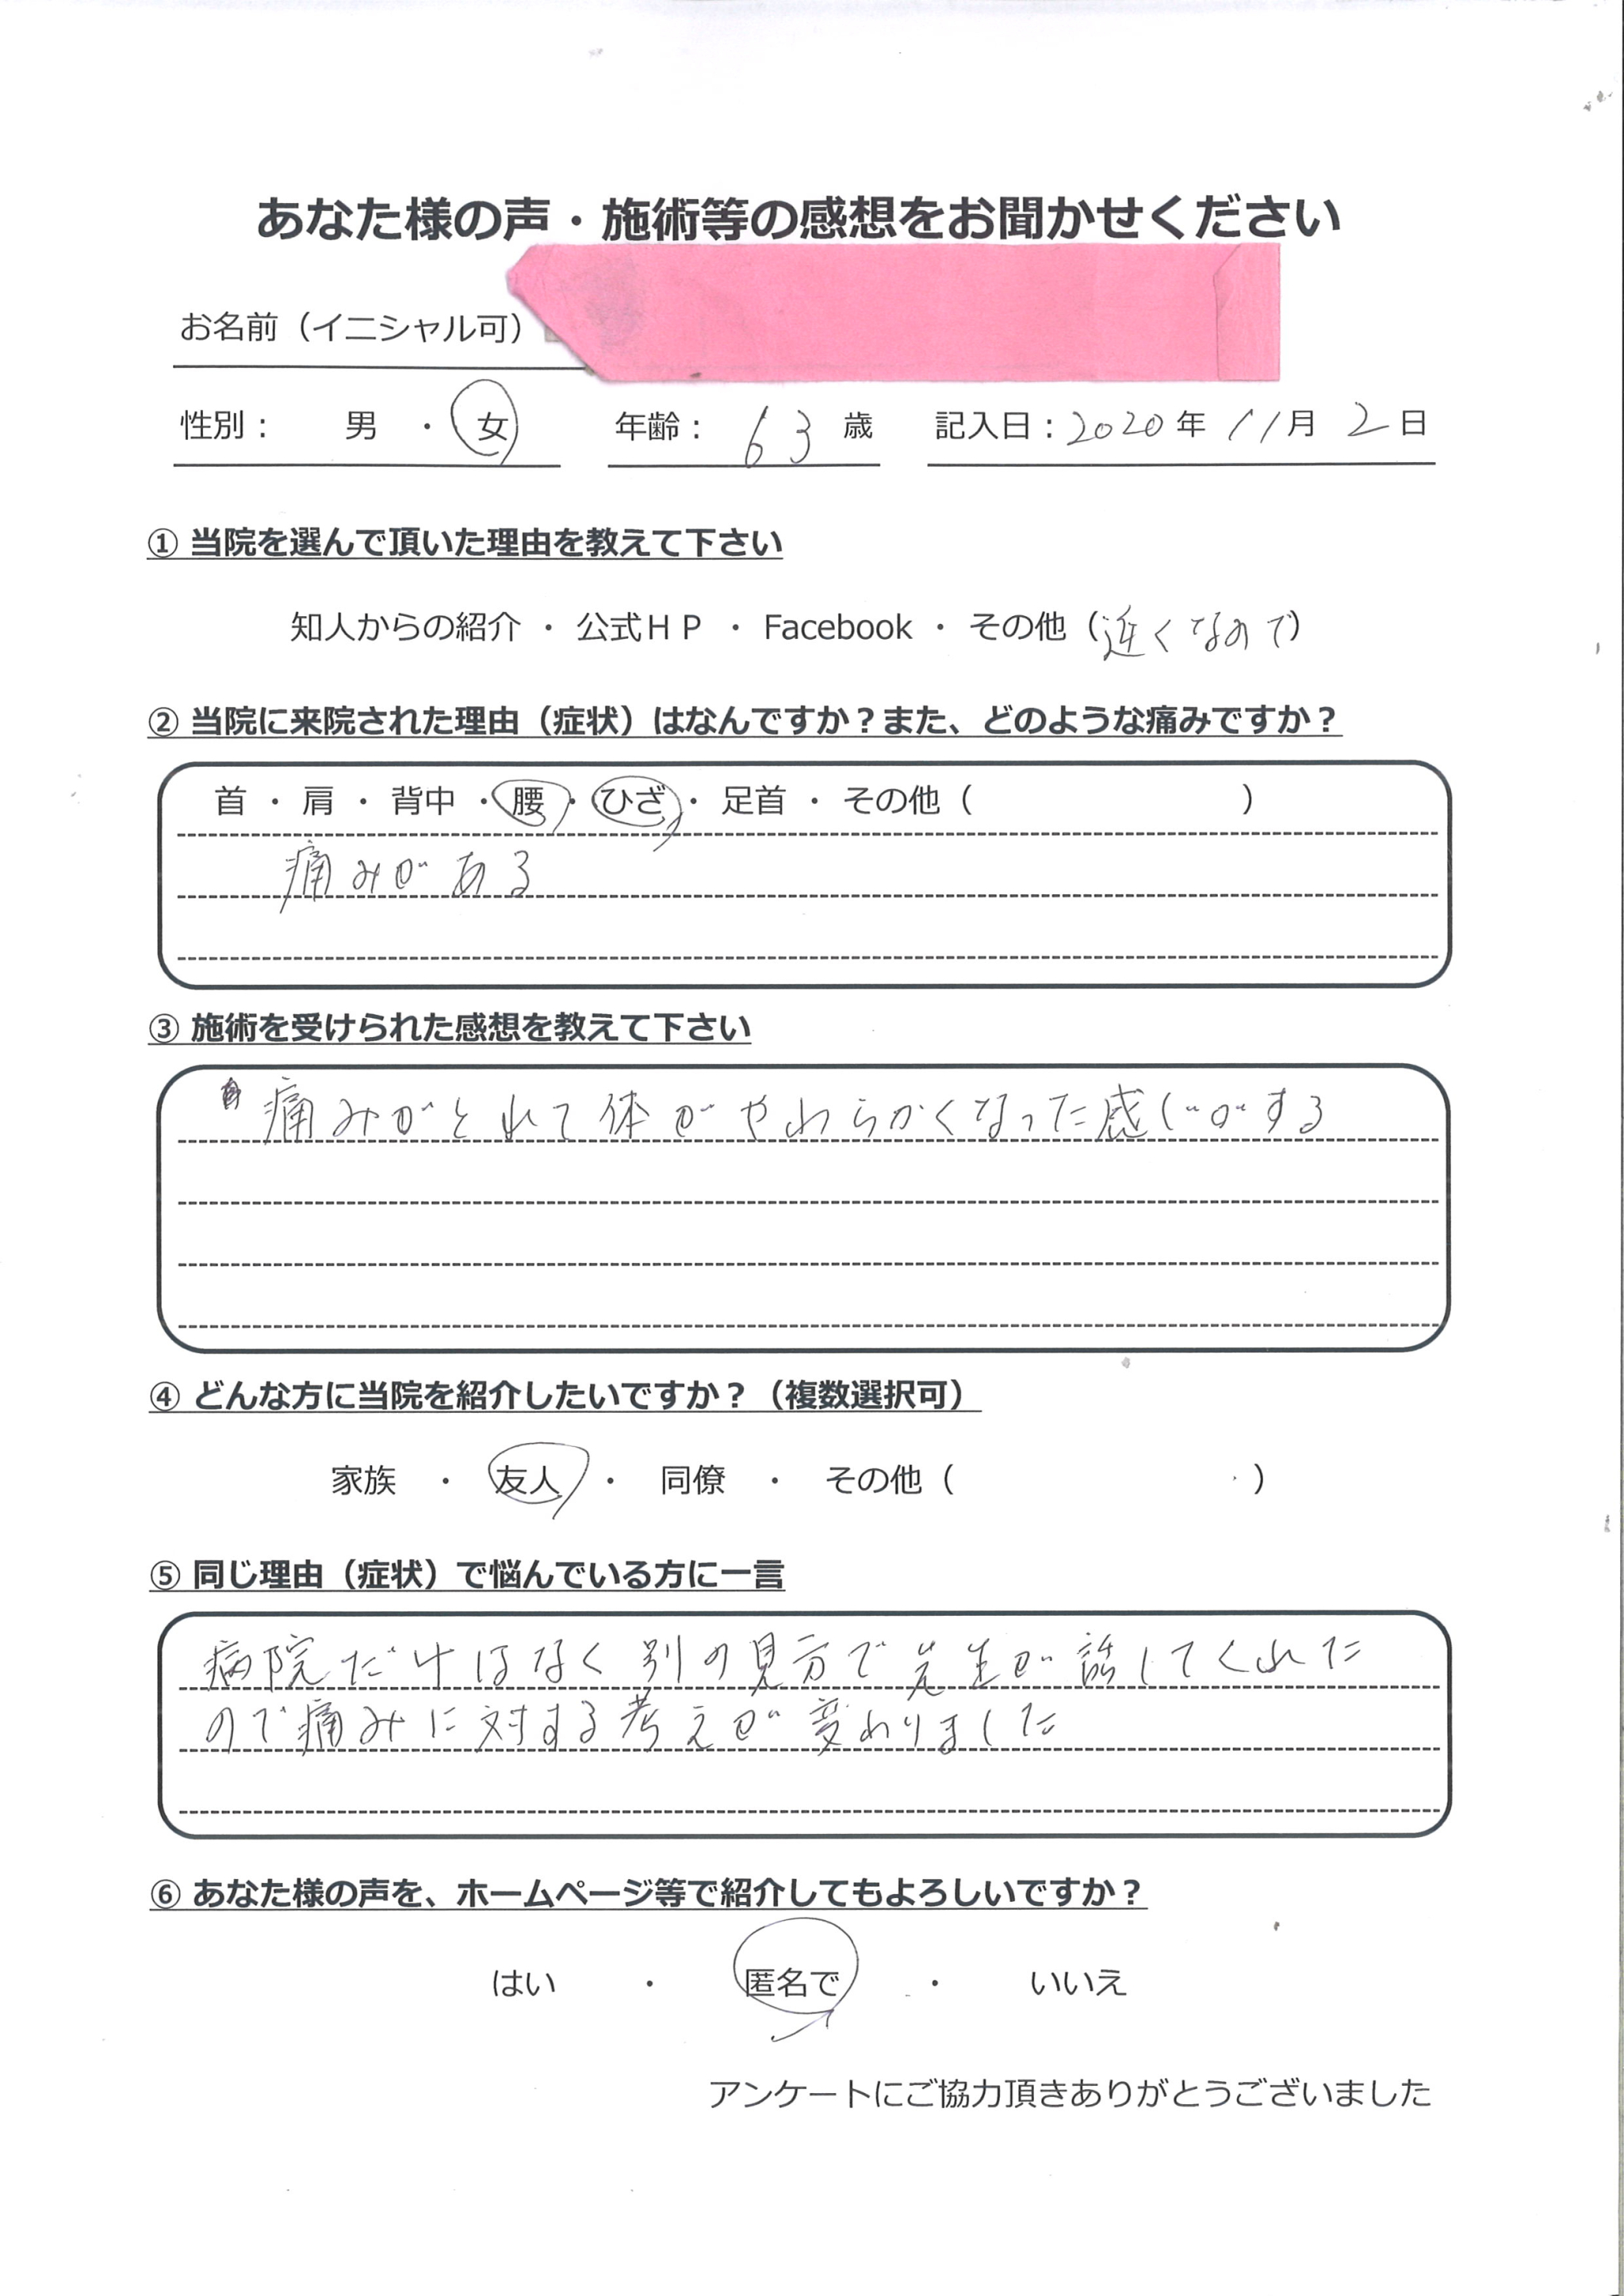 あなた様の声・施術等の感想をお聞かせください
お名前（イニシャル可）
性別： 男 ・ 女 年齢： 63 歳 記入日：2020年 11月 2日
① 当院を選んで頂いた理由を教えて下さい
知人からの紹介 ・ 公式ＨＰ ・ Facebook ・ その他（近くなので）
② 当院に来院された理由（症状）はなんですか？また、どのような痛みですか？
首 ・ 肩 ・ 背中 ・ 腰 ・ ひざ ・ 足首 ・ その他（ ）
痛みがある
③ 施術を受けられた感想を教えて下さい
痛みがとれて体がやわらかくなった感じがする
④ どんな方に当院を紹介したいですか？（複数選択可）
家族 ・ 友人 ・ 同僚 ・ その他（ ）
⑤ 同じ理由（症状）で悩んでいる方に一言
病院だけはなく別の見方で先生が話してくれた
ので痛みに対する考えが変わりました
⑥ あなた様の声を、ホームページ等で紹介してもよろしいですか？
はい ・ 匿名で ・ いいえ
アンケートにご協力頂きありがとうございました